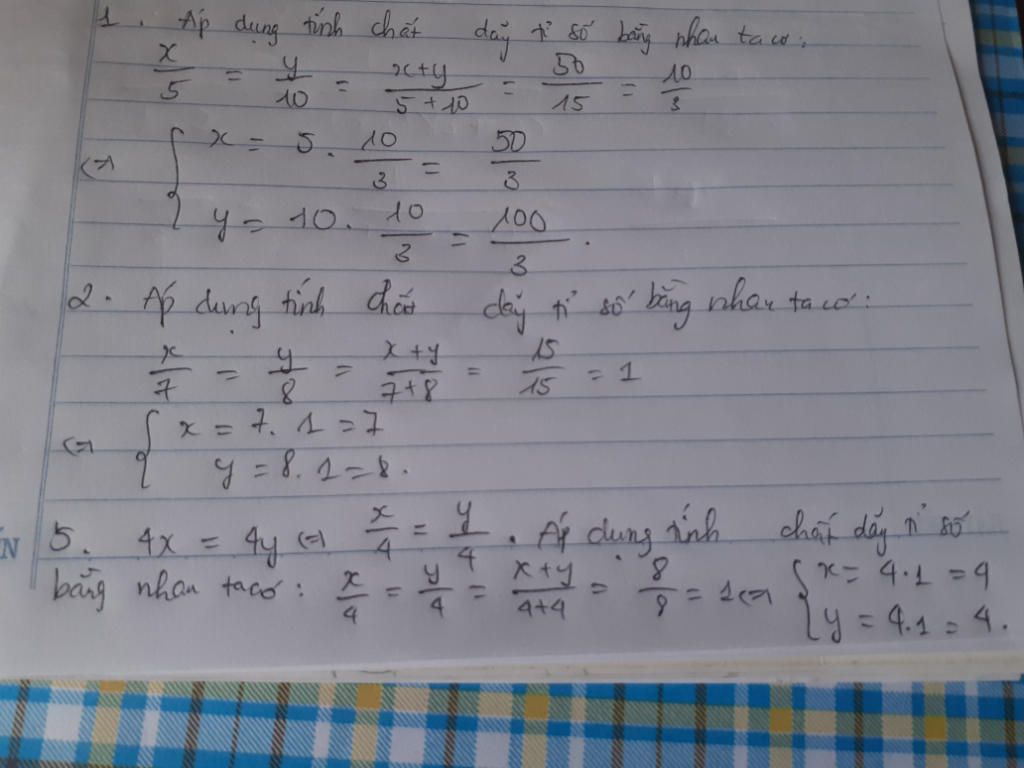 1. Áp dụng tính chất dãy tỉ số bằng nhau ta có:
x/5 = y/10 = x+y/5+10 = 50/15 = 10/3
<=> { x = 5. 10/3 = 50/3
y = 10. 10/3 = 100/3.
2. Áp dụng tính chất dãy tỉ số bằng nhau ta có:
x/7 = y/8 = x+y/7+8 = 15/15 = 1
<=> { x = 7. 1 = 7
y = 8. 1 = 8.
5. 4x = 4y <=> x/4 = y/4. Áp dụng tính chất dãy tỉ số
bằng nhau ta có: x/4 = y/4 = x+y/4+4 = 8/8 = 1 <=> { x = 4.1 = 4
y = 4.1 = 4.